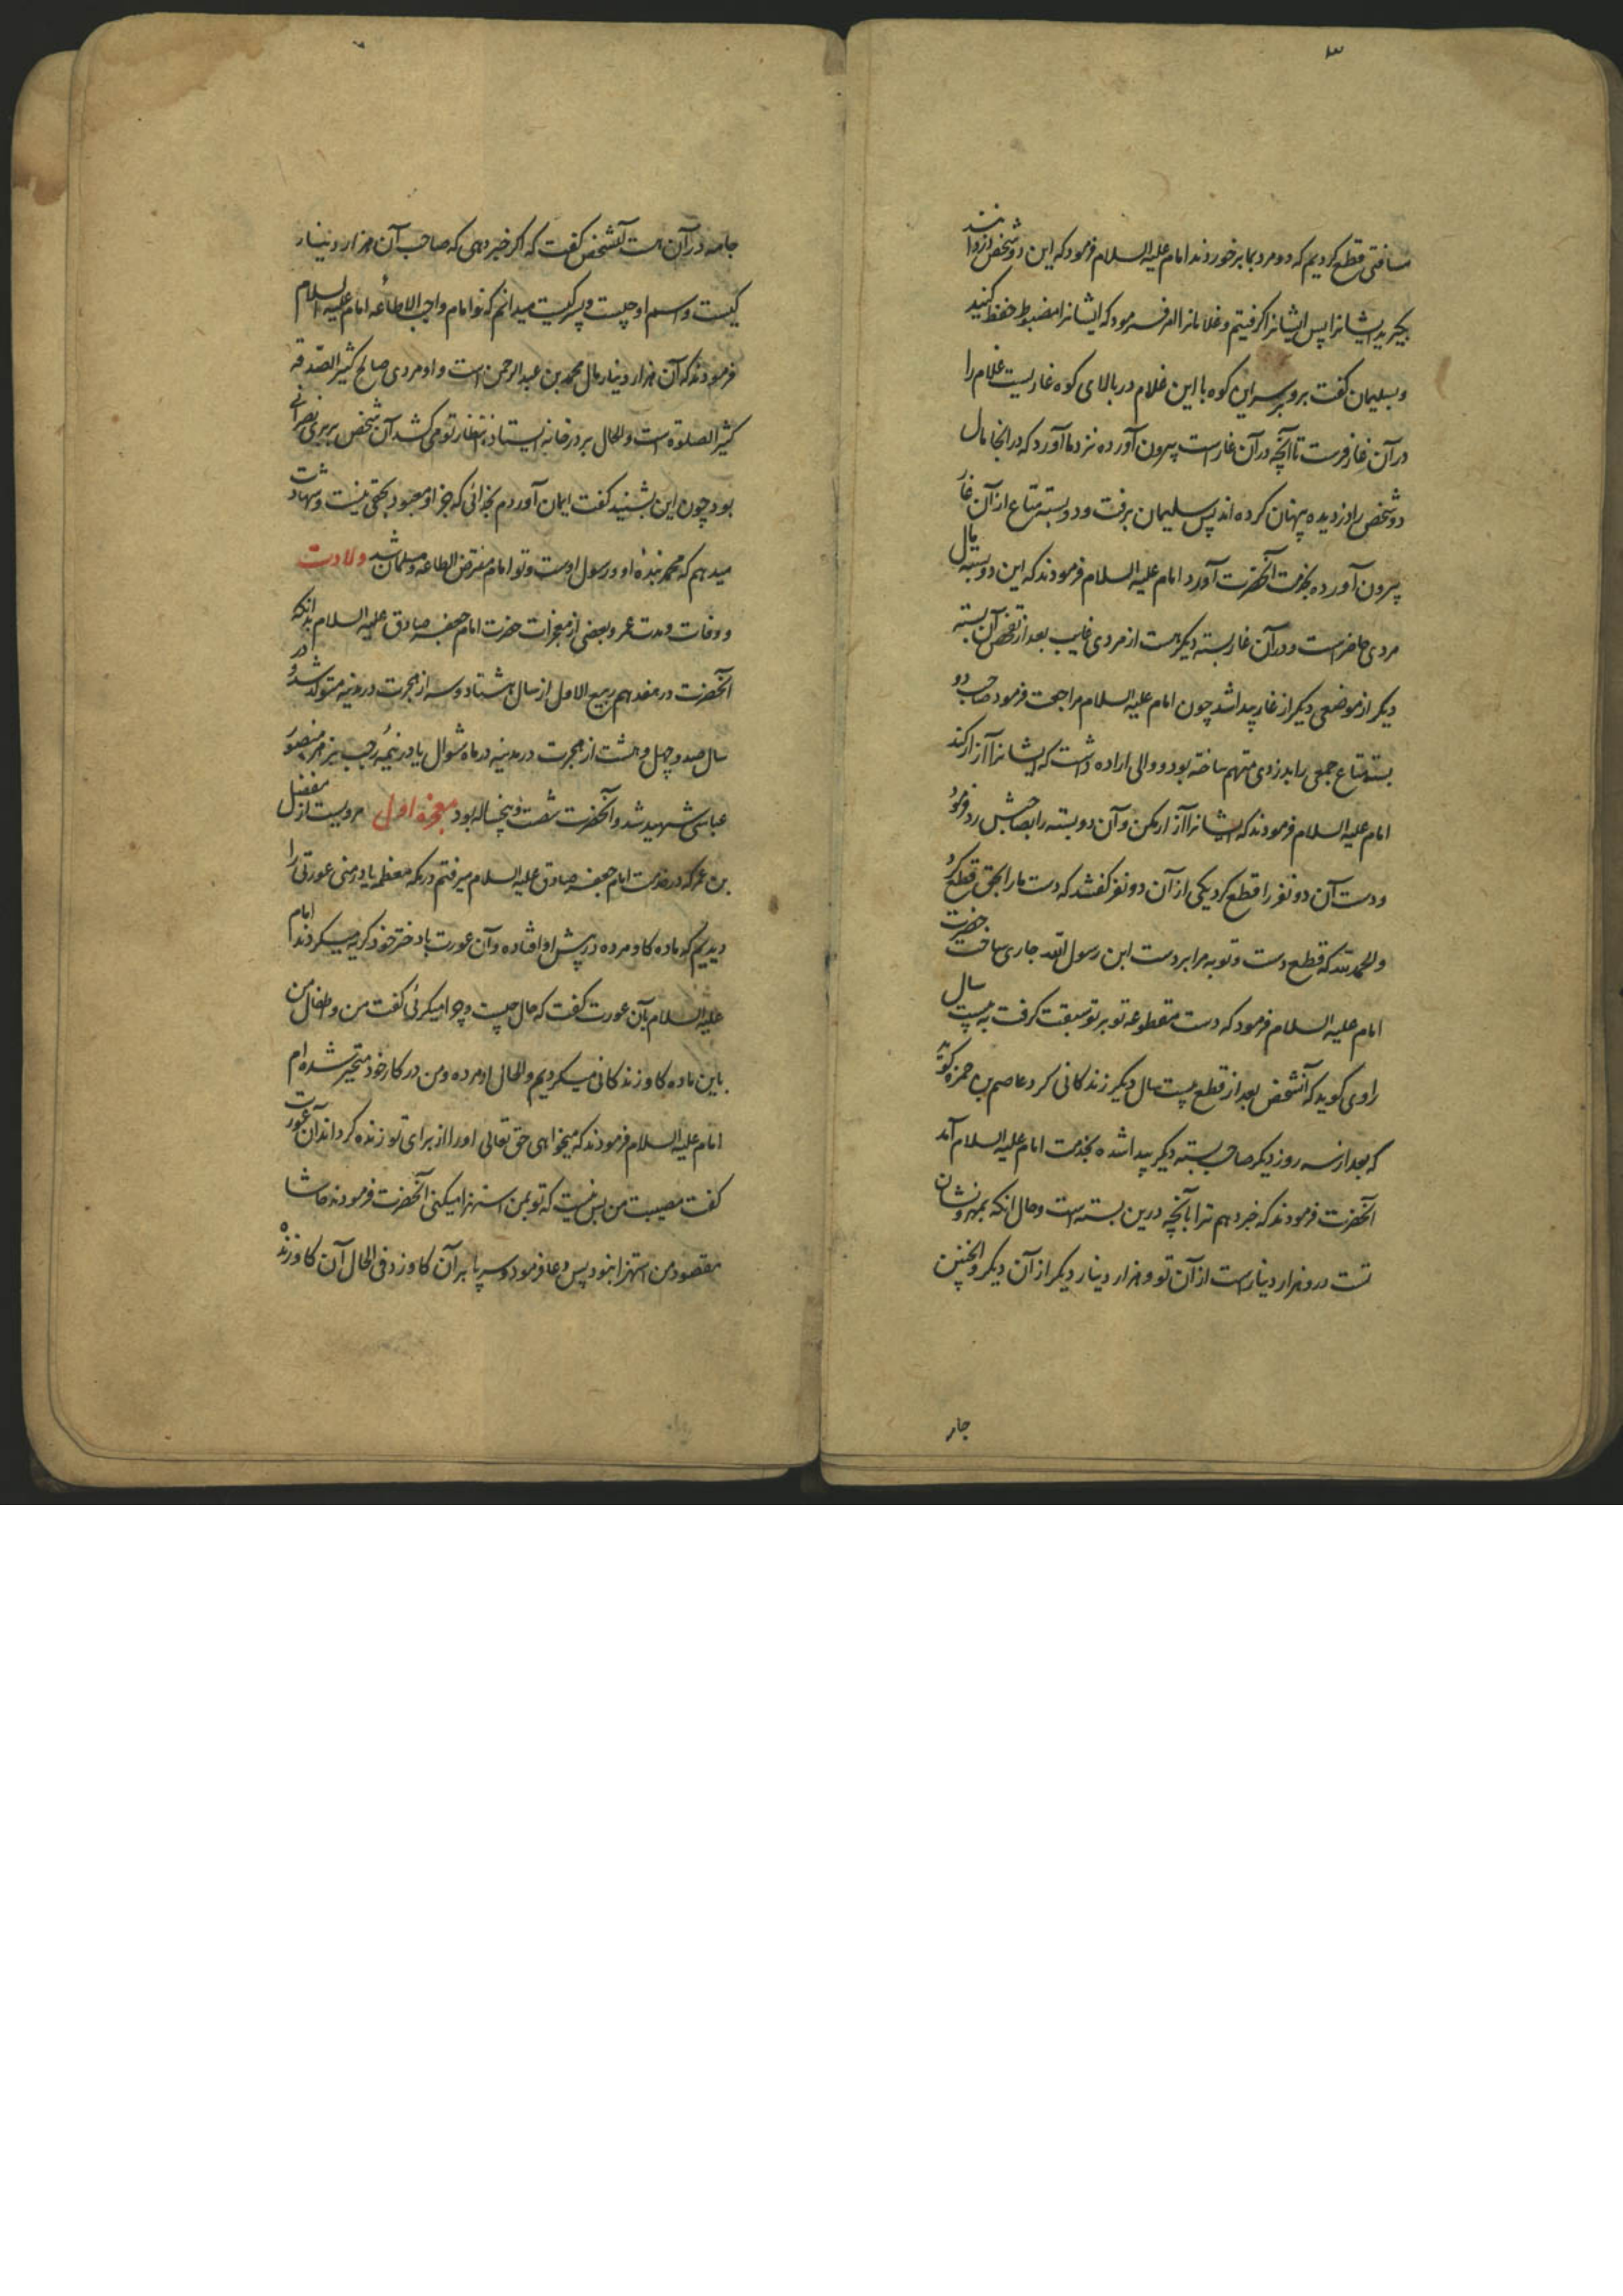 ۳
مسافتی قطع کردیم که دو مرد بما برخوردند امام علیه السلام فرمود که این دو شخص دزدانند
بگیرید ایشانرا پس ایشانرا گرفتیم و غلامانرا امر فرمود که ایشانرا مضبوط حفظ کنید
و بسلیمان گفت برو بر سر این کوه با این غلام در بالای کوه غاریست غلام را
در آن غار فرست تا آنچه در آن غار است بیرون آورده نزد ما آورد که در انجا مال
دو شخص را دزدیده پنهان کرده اند پس سلیمان برفت و دو بسته متاع از آن غار
بیرون آورده بخدمت آنحضرت آورد امام علیه السلام فرمودند که این دو بسته مال
مردی حاضر است و در آن غار بسته دیگر هست از مردی غایب بعد از تفحص آن بسته
دیگر از موضعی دیگر از غار پیدا شد چون امام علیه السلام مراجعت فرمود صاحب دو
بسته متاع جمعی را بدزدی متهم ساخته بود و والی اراده داشت که ایشانرا آزار کند
امام علیه السلام فرمودند که ایشانرا آزار مکن و آن دو بسته را بصاحبش رد فرمود
و دست آن دو نفر را قطع کرد یکی از آن دو نفر گفتند که دست ما را بحق قطع کرد
و الحمد لله که قطع دست و توبه مرا بر دست ابن رسول الله جاری ساخت حضرت
امام علیه السلام فرمود که دست مقطوعه تو بر تو سبقت گرفت به بیست سال
راوی گوید که آنشخص بعد از قطع بیست سال دیگر زندگانی کرد عاصم بن حمزه گوید
که بعد از سه روز دیگر صاحب بسته دیگر پیدا شده بخدمت امام علیه السلام آمد
آنحضرت فرمودند که خبر دهم ترا بآنچه درین بسته است و حال انکه بمهر و نشان
تست درو هزار دینار است از آن تو و هزار دینار دیگر از آن دیگر و انچنین
جار
جامه در آن هست آنشخص گفت که اگر خبر دهی که صاحب آن هزار دینار
کیست و اسم او چیست و پسر کیست میدانم که تو امام واجب الاطاعه امام علیه السلام
فرمودند که آن هزار دینار مال محمد بن عبد الرحمن است و او مردی صالح کثیر الصدقه
کثیر الصلوة است و الحال بر در خانه ایستاده انتظار تو می کشد آن شخص بربری نصرانی
بود چون این بشنید گفت ایمان آوردم بخدائی که جز او معبود بحقی نیست و شهادت
میدهم که محمد بنده او و رسول اوست و تو امام مفترض الطاعه و مسلمان شد ولادت
و وفات و مدت عمر و بعضی از معجزات حضرت امام جعفر صادق علیه السلام بدانکه
آنحضرت در هفدهم ربیع الاول از سال هشتاد و سه از هجرت در مدینه متولد شد و در
سال صد و چهل و هشت از هجرت در مدینه در ماه شوال یا در نیمه رجب بزهر منصور
عباسی شهید شد و آنحضرت شصت و پنجساله بود معجزه اول مرویست از مفضل
بن عمر که در خدمت امام جعفر صادق علیه السلام میرفتم در مکه معظمه یا در منی عورتی را
دیدیم که ماده گاو مرده در پیش او افتاده و آن عورت با دختر خود گریه میکردند امام
علیه السلام بآن عورت گفت که حال چیست و چرا میگرئی گفت من و اطفال من
باین ماده گاو زندگانی میکردیم و الحال او مرده و من در کار خود متحیر شده ام
امام علیه السلام فرمودند که میخواهی حق تعالی او را از برای تو زنده گرداند آن عورت
گفت مصیبت من بس نیست که تو بمن استهزا میکنی آنحضرت فرمودند حاشا
مقصود من استهزا نبود پس دعا فرمود و سر پا بر آن گاو زد فی الحال آن گاو زنده